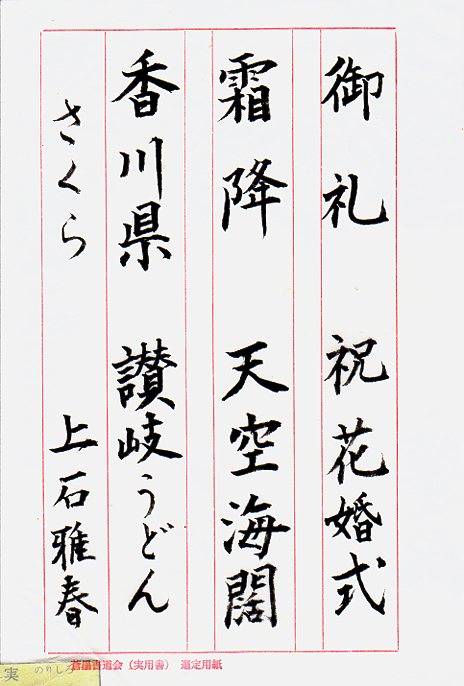 御礼 祝花婚式
霜降 天空海闊
香川県 讃岐うどん
さくら 上石雅春
書道会(実用書) 選定用紙
実 のりしろ